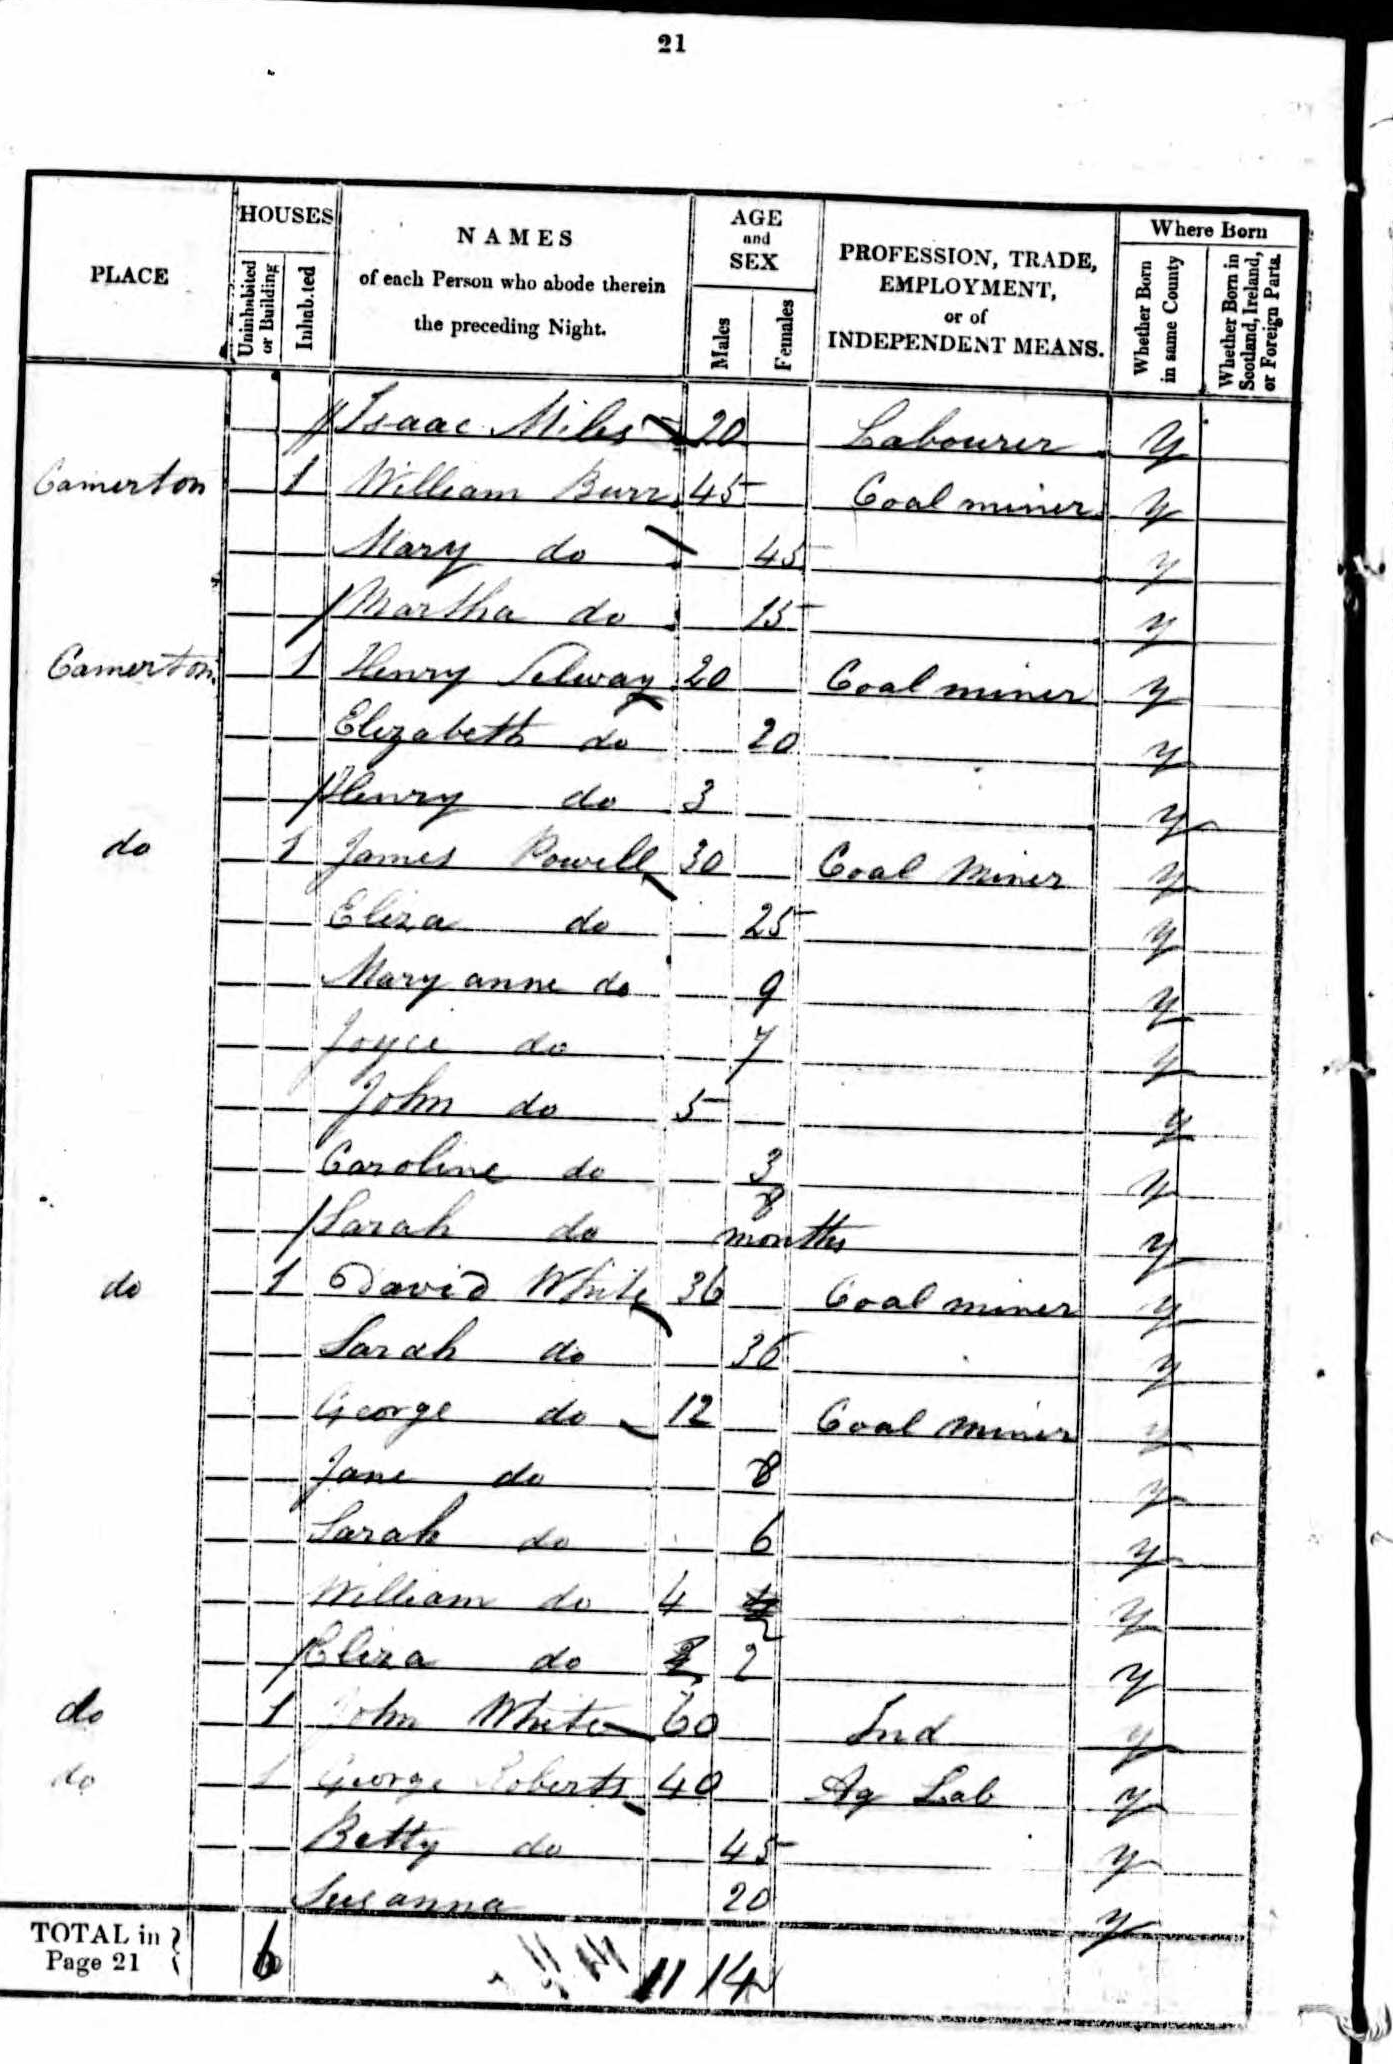 21
PLACE
HOUSES
Uninhabited or Building
Inhabited
NAMES
of each Person who abode therein
the preceding Night.
AGE
and
SEX
Males
Females
PROFESSION, TRADE,
EMPLOYMENT,
or of
INDEPENDENT MEANS.
Where Born
Whether Born in same County
Whether Born in Scotland, Ireland, or Foreign Parts.
Isaac Miles 20 Labourer y
Camerton 1 William Burr 45 Coal miner y
Mary do 45 y
Martha do 15 y
Camerton 1 Henry Selway 20 Coal miner y
Elizabeth do 20 y
Henry do 3 y
do 1 James Powell 30 Coal Miner y
Eliza do 25 y
Mary anne do 9 y
Joyce do 7 y
John do 5 y
Caroline do 3 y
8
Sarah do months y
do 1 David White 36 Coal miner y
Sarah do 36 y
George do 12 Coal Miner y
Jane do 8 y
Sarah do 6 y
William do 4 y
Eliza do 2 y
do 1 John White 60 Ind y
do 1 George Roberts 40 Ag Lab y
Betty do 45 y
Susanna 20 y
TOTAL in
Page 21
6 11 14